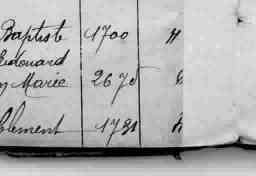 Baptiste 1700
Edouard
Marie 2675
Clement 1731